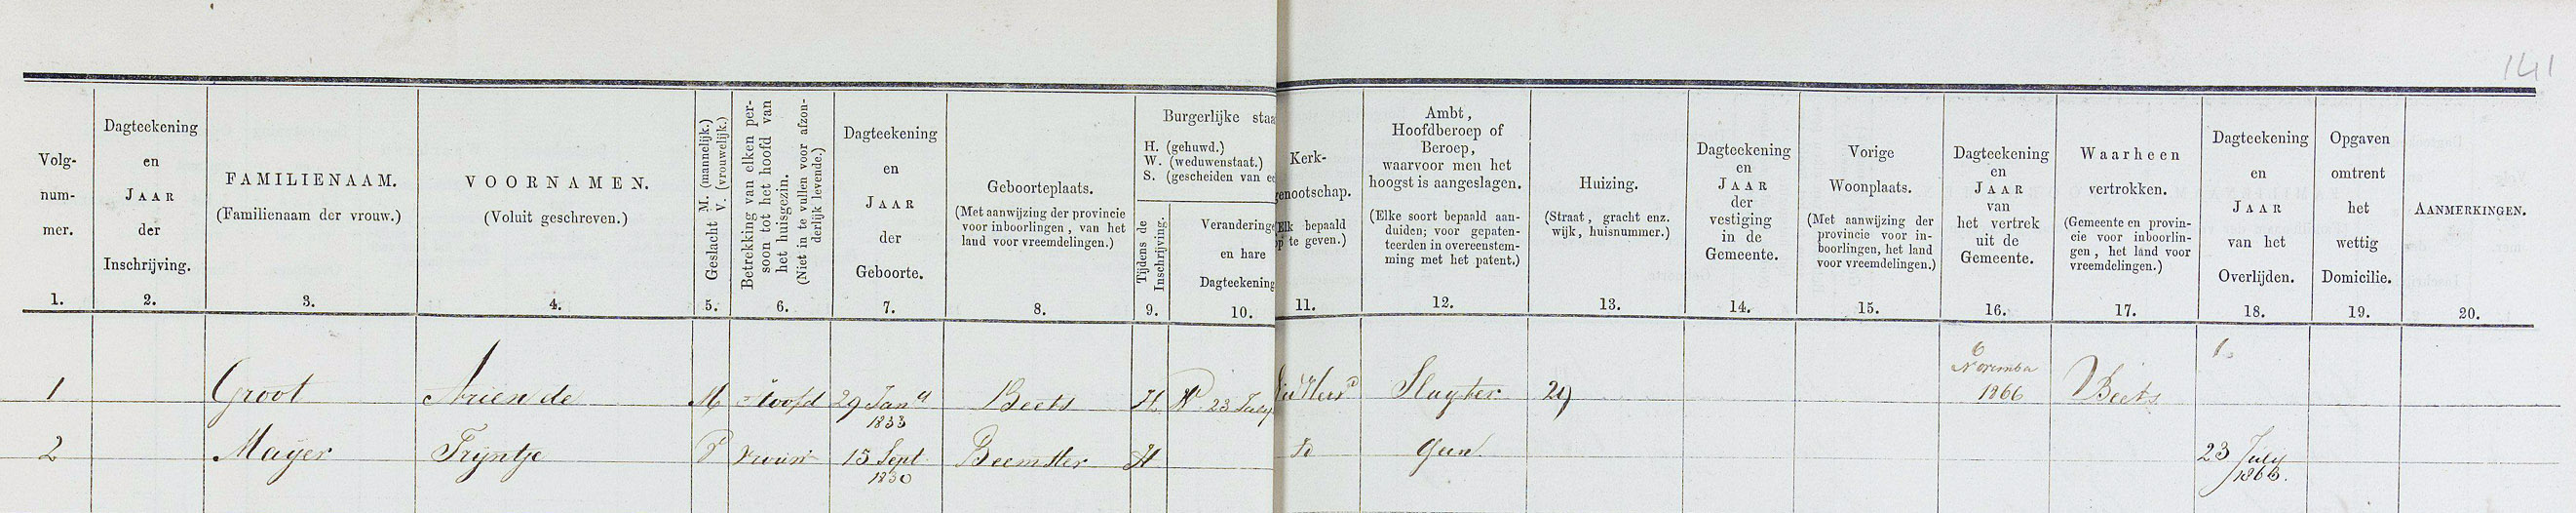 141
Volg-
num-
mer.
1.
Dagteekening
en
JAAR
der
Inschrijving.
2.
FAMILIENAAM.
(Familienaam der vrouw.)
3.
VOORNAMEN.
(Voluit geschreven.)
4.
Geslacht M. (mannelijk.)
V. (vrouwelijk.)
5.
Betrekking van elken per-
soon tot het hoofd van
het huisgezin.
(Niet in te vullen voor afzon-
derlijk levende.)
6.
Dagteekening
en
JAAR
der
Geboorte.
7.
Geboorteplaats.
(Met aanwijzing der provincie
voor inboorlingen, van het
land voor vreemdelingen.)
8.
Burgerlijke staa
H. (gehuwd.)
W. (weduwenstaat.)
S. (gescheiden van e
Tijdens de
Inschrijving.
9.
Veranderinge
en hare
Dagteekening
10.
Kerk-
genootschap.
(Elk bepaald
op te geven.)
11.
Ambt,
Hoofdberoep of
Beroep,
waarvoor men het
hoogst is aangeslagen.
(Elke soort bepaald aan-
duiden; voor gepaten-
teerden in overeenstem-
ming met het patent.)
12.
Huizing.
(Straat, gracht enz.
wijk, huisnummer.)
13.
Dagteekening
en
JAAR
der
vestiging
in de
Gemeente.
14.
Vorige
Woonplaats.
(Met aanwijzing der
provincie voor in-
boorlingen, het land
voor vreemdelingen.)
15.
Dagteekening
en
JAAR
van
het vertrek
uit de
Gemeente.
16.
Waarheen
vertrokken.
(Gemeente en provin-
cie voor inboorlin-
gen, het land voor
vreemdelingen.)
17.
Dagteekening
en
JAAR
van het
Overlijden.
18.
Opgaven
omtrent
het
wettig
Domicilie.
19.
AANMERKINGEN.
20.
1 Groot Arien de M Hoofd 29 Jan
1833
Beets H W 23 July
Slagter 29
6
November
1866
Beets
2 Mayer Trijntje V vrouw 15 Sept
1830
Beemster H
Geen
23 July
1863.